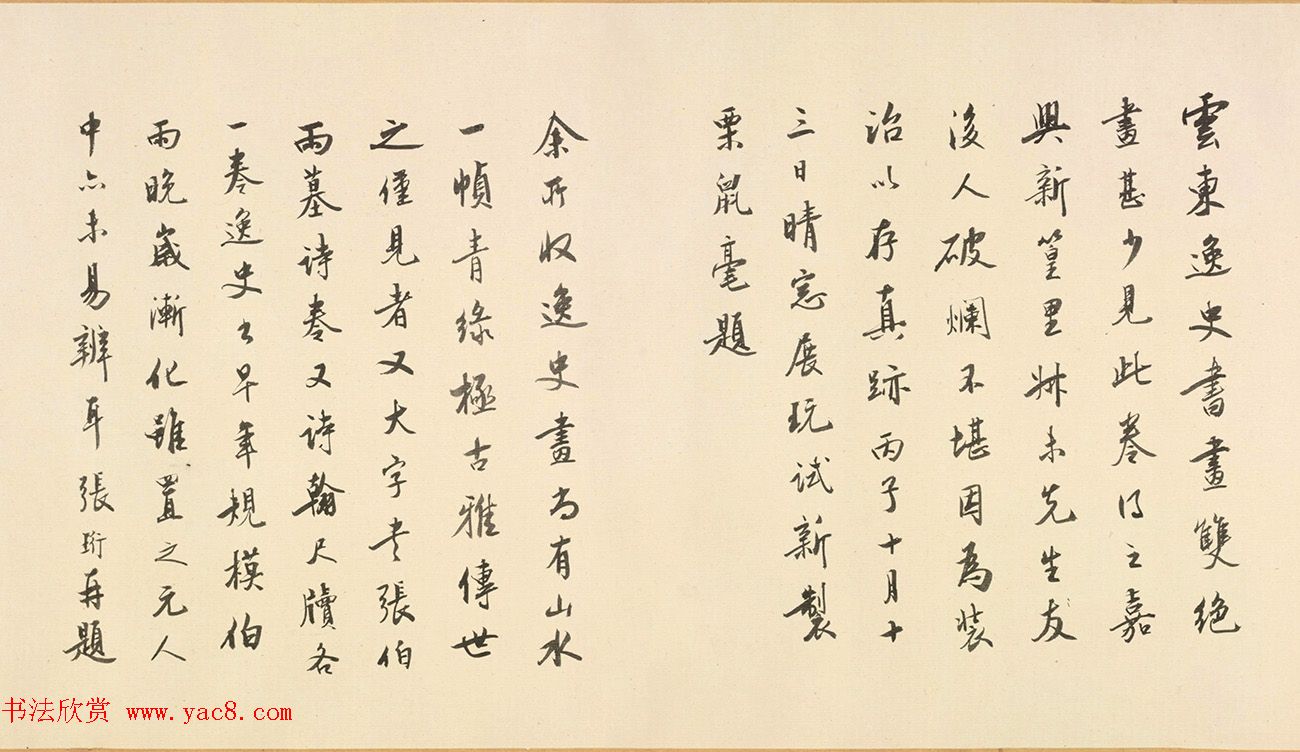 雲東逸史書畫雙絕
畫甚少見此卷得之嘉
興新篁里姊未先生友
後人破爛不堪因為裝
治以存真跡丙子十月十
三日晴窓展玩試新製
栗鼠毫題
余所收逸史畫尚有山水
一幀青綠極古雅傳世
之僅見者又大字書張伯
雨墓詩卷又詩翰尺牘各
一卷逸史書早年規模伯
雨晚歲漸化雖置之元人
中亦未易辨耳張珩再題
书法欣赏 www.yac8.com